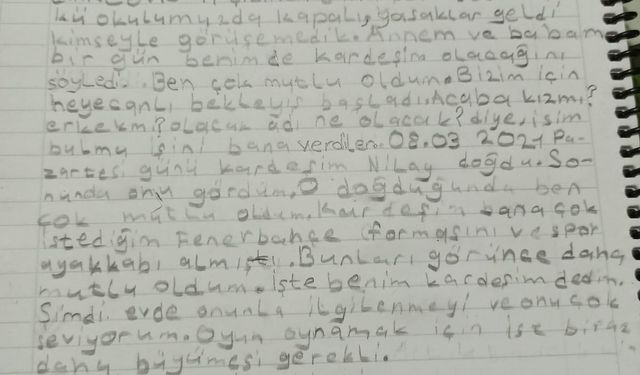 kü okulumuzda kapalı, yasaklar geldi
kimseyle görüşemedik. Annem ve babam
bir gün benimde kardeşim olacağını
söyledi. Ben çok mutlu oldum. Bizim için
heyecanlı bekleyiş başladı. Acaba kızmı?
erkekmi? olacak adı ne olacak? diye, isim
bulma işini bana verdiler. 08.03 2021 Pa-
zartesi günü kardeşim Nilay doğdu. So-
nunda onu gördüm. O doğduğunda ben
çok mutlu oldum. Kardeşim bana çok
istediğim Fenerbahçe formasını ve spor
ayakkabı almış. Bunları görünce daha
mutlu oldum. İşte benim kardeşim dedim.
Şimdi evde onunla ilgilenmeyi ve onu çok
seviyorum. Oyun oynamak için ise biraz
daha büyümesi gerekli.